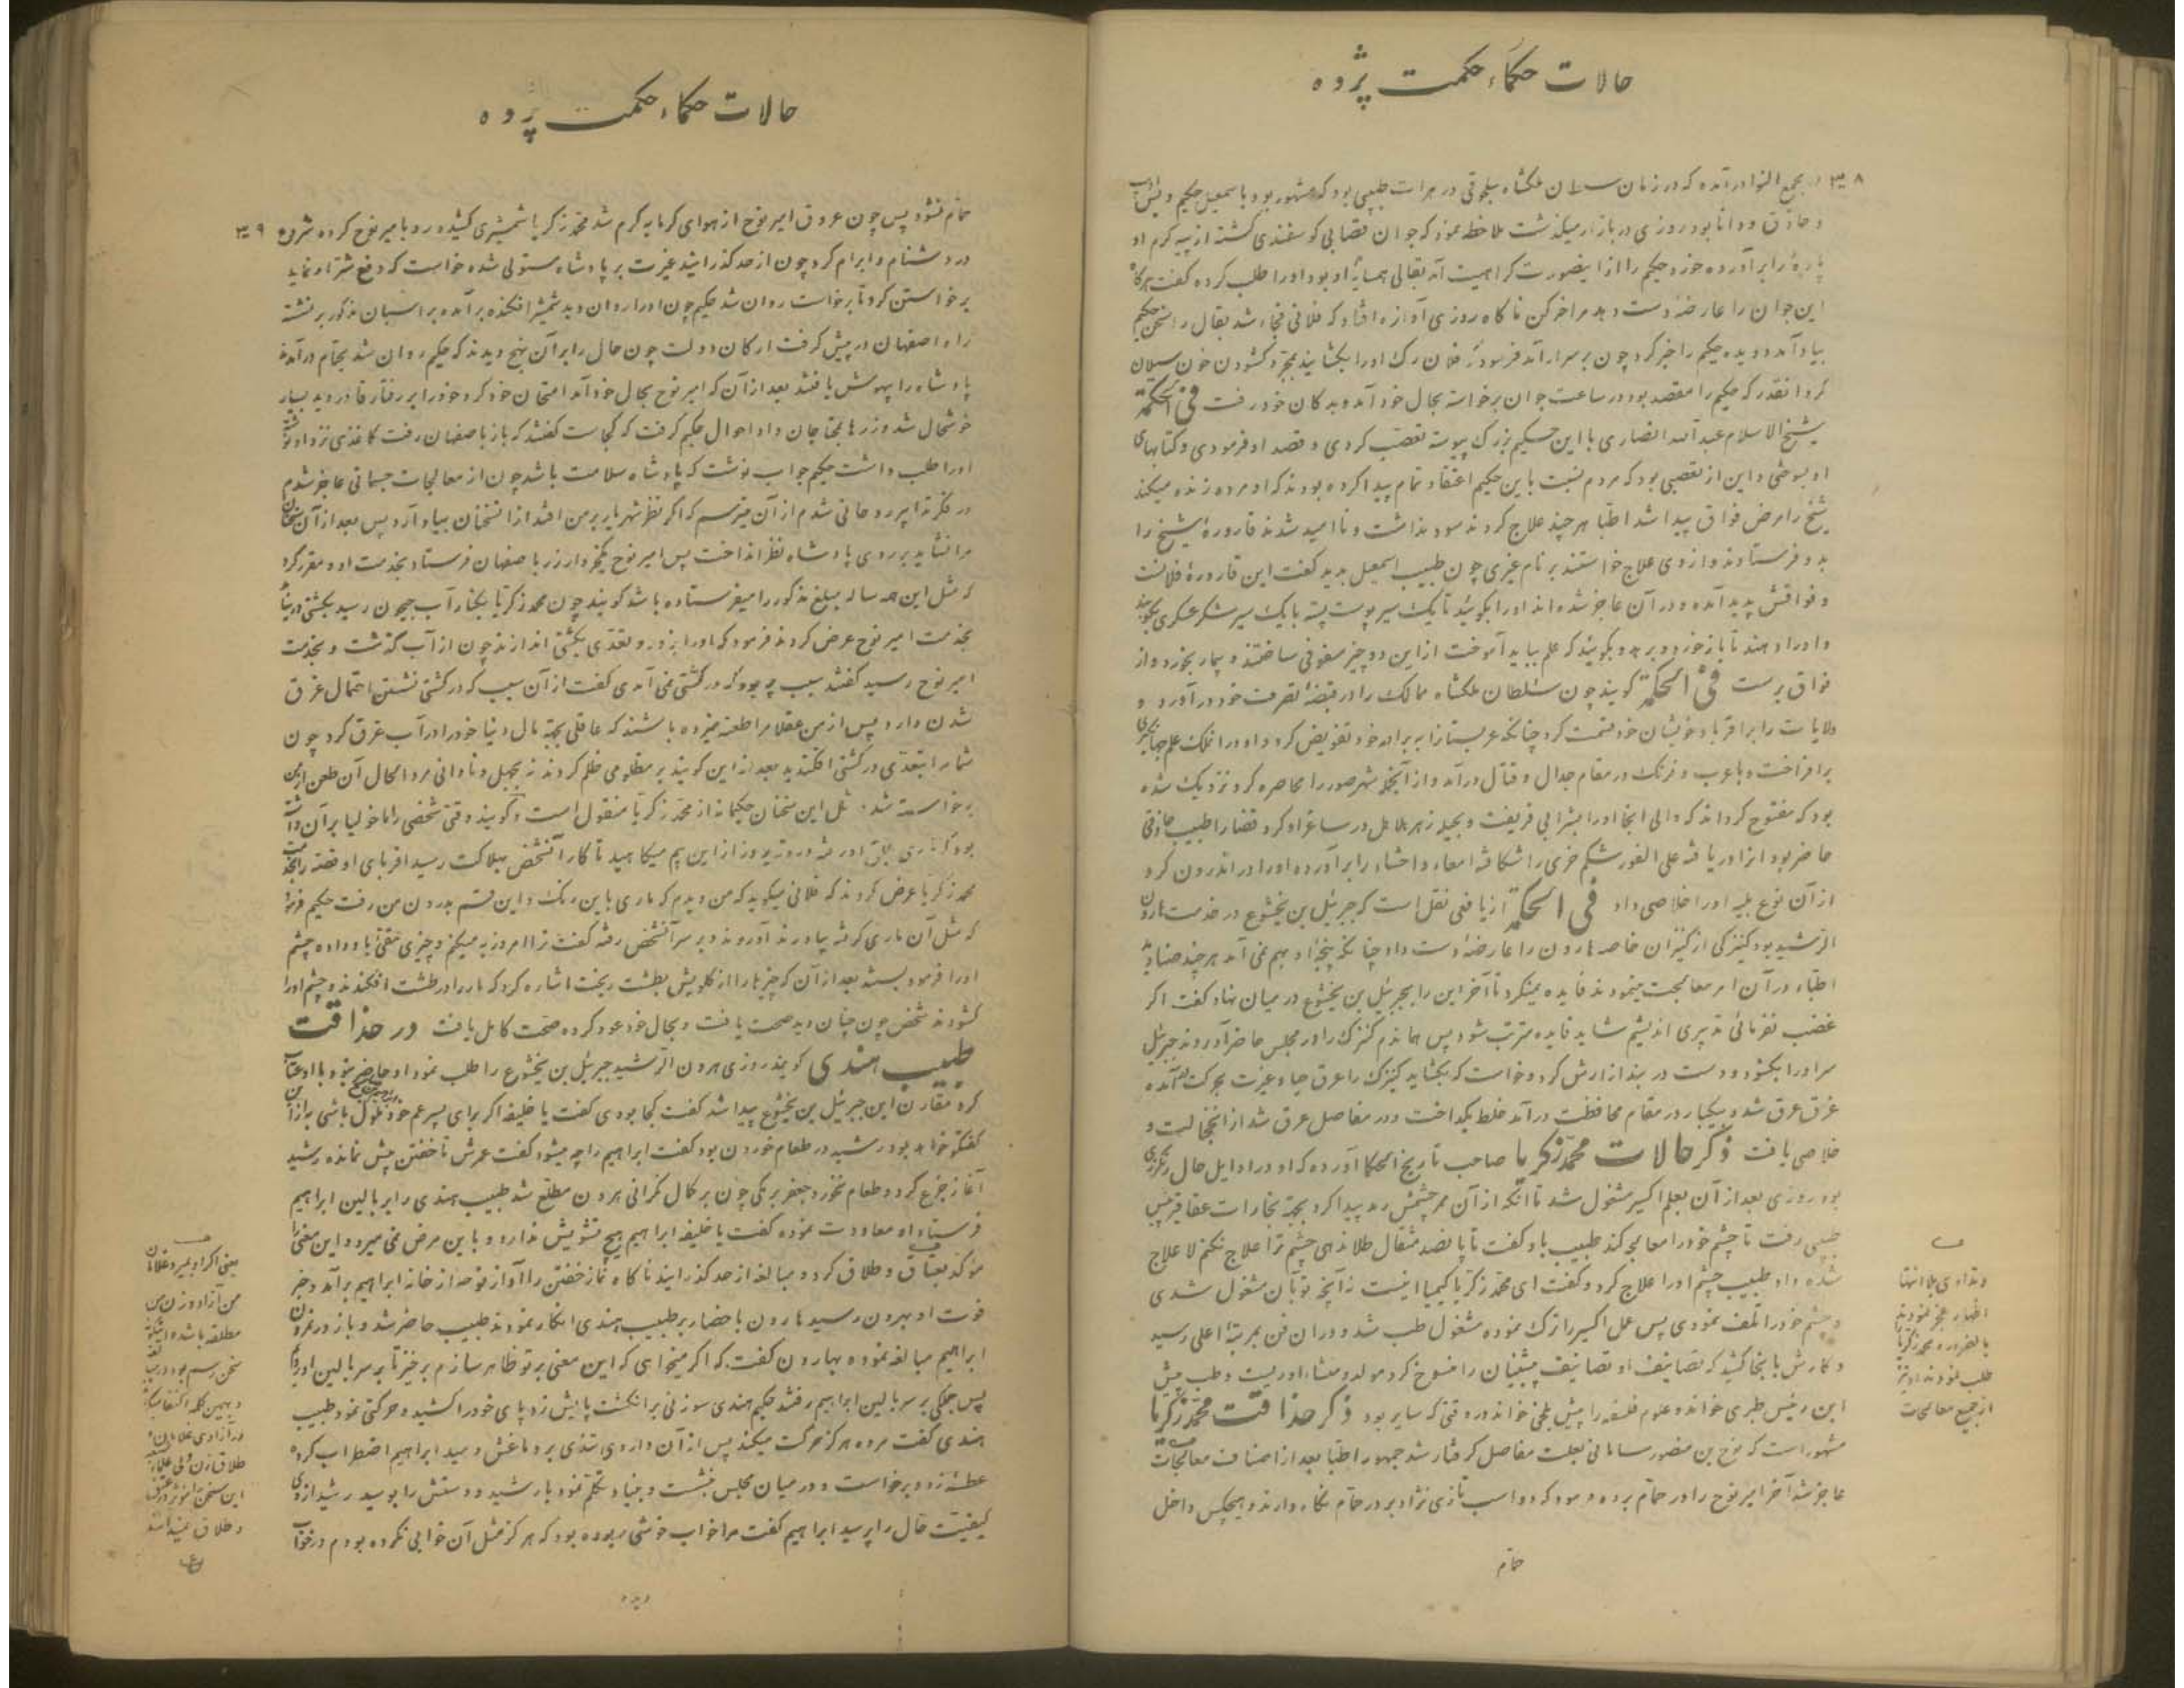 حالات حکماء حکمت پژوه
۳۸ در مجمع النوادر آمده که در زمان سلطان ملکشاه سلجوقی در هرات طبیبی بود که مشهور بود باسمعیل حکیم
و حاذق و دانا بود روزی در بازار میگذشت ملاحظه نمود که جوان قصابی گوسفندی کشته از پیه گرم او
پارهٔ را برآورده خورد حکیم را ازاینصورت کراهیت آمد بقالی همسایهٔ او بود او را طلب کرده گفت هرگاه
این جوان را عارضهٔ دست دهد مرا خبر کن ناگاه روزی آوازه افتاد که فلانی فجاء شد بقال را سخن حکیم
بیاد آمد دویده حکیم را خبر کرد چون بر سر او آمد فرمود که فلان رگ او را بگشایند بمجرد گشودن خون سیلان
کرد آنقدر که حکیم را مقصد بود در ساعت جوان برخاسته بحال خود آمد و بدکان خود رفت فی الحکمة
شیخ الاسلام عبدالله انصاری با این حکیم بزرگ پیوسته تعصب کردی و قصد او فرمودی و کتابهای
او بسوختی و این از تعصبی بود که مردم نسبت باین حکیم اعتقاد تمام پیدا کرده بودند که او مرده زنده میکند
شیخ را مرض فواق پیدا شد اطبا هر چند علاج کردند سود نداشت و ناامید شدند قارورهٔ شیخ را
بدو فرستادند و از وی علاج خواستند بر نام غیری چون طبیب اسمعیل بدید گفت این قارورهٔ فلانست
و فواقش پدید آمده و در آن عاجز شده‌اند او را بگوئید تا یک سیر پوست پسته با یک سیر شکر عسکری بکوبند
و او را دهند تا باز خورد و برهد و بگوئید که علم بباید آموخت از این دو چیز سفوفی ساختند و بیمار بخورد و از
فواق برست فی الحکمة گویند چون سلطان ملکشاه ممالک را در قبضهٔ تصرف خود درآورد و
ولایات را بر اقربا و خویشان خود قسمت کرد چنانکه عربستان را به برادر خود تفویض کرد و او در آنملک علم جهانگیری
برافراخت و با عرب و فرنگ در مقام جدال و قتال درآمد و از آنجمله شهر صور را محاصره کرد نزدیک شده
بود که مفتوح گرداند که والی آنجا او را بشرابی فریفت و بحیله زهر هلاهل در ساغر او کرد قضا را طبیب حاذقی
حاضر بود این را دریافته علی الفور شکم خری را شکافته امعاء و احشاء را برآورده او را در اندرون کرد
از آن نوع بلیه او را خلاصی داد فی الحکمة از یافعی نقل است که جبرئیل بن بختیشوع در خدمت هارون
الرشید بود کنیزکی از کنیزان خاصه هارون را عارضهٔ دست داد چنانکه پنجهٔ او بهم نمی‌آمد هرچند صنادید
اطباء در آن امر معالجت مینمودند فایده نمیکرد تا آخر این را بجبرئیل بن بختیشوع در میان نهاد گفت اگر
غضب نفرمائی تدبیری اندیشم شاید فایده مترتب شود پس هماندم کنیزک را در مجلس حاضر آوردند جبرئیل
سر او را بگشود و دست در بند ازارش کرد و خواست که بگشاید کنیزک را عرق حیا و غیرت بحرکت آمده
غرق عرق شد و بیکبار در مقام محافظت درآمد خلط بگداخت و در مفاصل عرق شد از
خلاصی یافت ذکر حالات محمد زکریا صاحب تاریخ الحکما آورده که او در اوایل حال زرگری
بود روزی بعد از آن بعلم اکسیر مشغول شد تا آنکه از آن ممر چشمش رمد پیدا کرد بجهة بخارات عقاقیر پیش
طبیبی رفت تا چشم خود را معالجه کند طبیب باو گفت تا پانصد مثقال طلا ندهی چشم ترا علاج نکنم لاعلاج
شده داد طبیب چشم او را علاج کرد و گفت ای محمد زکریا کیمیا اینست نه آنچه تو بآن مشغول شدی
و چشم خود را تلف نمودی پس عمل اکسیر را ترک نموده مشغول طب شد و در آن فن بمرتبهٔ اعلی رسید
و کارش بانجا کشید که تصانیف او تصانیف پیشینیان را منسوخ کرد مولد و منشاء او ریست و طب پیش
ابن ربن طبری خواند و علوم فلسفه را پیش بلخی خواند در وقتی که سایر بود ذکر حذاقت محمد زکریا
مشهور است که نوح بن منصور سامانی بعلت مفاصل گرفتار شد جمهور اطبا بعد از اصناف معالجات
عاجز شد آخر امیر نوح را در حمام برده فرمود که دو اسب تازی نژاد بر در حمام نگاه دارند و هیچکس داخل
حمام
و تداوی بلا انتها
اظهار عجز نمودند
بالضروره محمد زکریا
طلب نمودند او نیز
از جمیع معالجات
حالات حکماء حکمت پژوه
حمام نشود پس چون عروق امیر نوح از هوای گرمابه گرم شد محمد زکریا شمشیری کشیده رو بامیر نوح کرده شروع ۳۹
در دشنام و ابرام کرد چون از حد گذرانید غیرت بر پادشاه مستولی شده خواست که دفع شر او نماید
برخاستن کرد تا برخاست روان شد حکیم چون او را روان دید شمشیر افکنده برآمد و بر اسبان مذکور برنشسته
راه اصفهان در پیش گرفت ارکان دولت چون حال را بر آن نهج دیدند که حکیم روان شد بحمام درآمدند
پادشاه را بیهوش یافتند بعد از آن که امیر نوح بحال خود آمد امتحان خود کرد خود را بر رفتار قادر دید بسیار
خوشحال شد و زرها بمحتاجان داد احوال حکیم گرفت که کجاست گفتند که باز باصفهان رفت کاغذی نزد او نوشته
او را طلب داشت حکیم جواب نوشت که پادشاه سلامت باشد چون از معالجات جسمانی عاجز شدم
در فکر تدابیر روحانی شدم از آن میترسم که اگر نظر شهریار بر من افتد از آنسخنان بیاد آرد پس بعد از آن سخنان
مرا نشاید بر روی پادشاه نظر انداخت پس امیر نوح یکخروار زر باصفهان فرستاد بخدمت او و مقرر کرد
که مثل این هر ساله مبلغ مذکور را میفرستاده باشد گویند چون محمد زکریا بکنار آب جیحون رسید بکشتی در نیامد
بخدمت امیر نوح عرض کردند فرمود که او را بزور و تعدی بکشتی اندازند چون از آب گذشت و بخدمت
امیر نوح رسید گفتند سبب چه بود که در کشتی نمی‌آمدی گفت از آن سبب که در کشتی نشستن احتمال غرق
شدن دارد پس از من عقلا مرا طعنه میزده باشند که عاقلی بجهة مال دنیا خود را در آب غرق کرد چون
شما مرا بتعدی در کشتی افکندید بعد از این گویند بر مظلومی ظلم کردند نه بجهل و نادانی مرد الحال آن طعن از من
برخاسته شد مثل این سخنان حکیمانه از محمد زکریا منقول است و گویند وقتی شخصی را مالیخولیا بر آن داشت
بود که ماری بحلق او رفته و روز بروز از این بیم میکاهید تا کار آنشخص بهلاکت رسید اقربای او قصه را بخدمت
محمد زکریا عرض کردند که فلانی میگوید که من دیدم که ماری باین رنگ و این قسم بدرون من رفت حکیم فرمود
که مثل آن ماری گرفته بیاورند آوردند و بر سر آنشخص رفته گفت ترا امروز به میکنم و چیزی مقئی باو داده چشم
او را فرمود بستند بعد از آن که چیزها را از گلویش بطشت ریخت اشاره کرد که مار را در طشت افکندند و چشم او را
گشودند شخص چون چنان دید صحت یافت و بحال خود عود کرده صحت کامل یافت در حذاقت
طبیب هندی گویند روزی هرون الرشید جبرئیل بن بختیشوع را طلب نمود او حاضر نبود با او عتاب
کرد مقارن این جبرئیل بن بختیشوع پیدا شد گفت کجا بودی گفت یا خلیفه اگر برای پسر عم خود ملول باشی به از این
گفتگو خواهد بود رشید در طعام خوردن بود گفت ابراهیم را چه میشود گفت عمرش تا خفتن بیش نمانده رشید
آغاز جزع کرد و طعام نخورد جعفر برمکی چون بر کمال نگرانی هرون مطلع شد طبیب هندی را بر بالین ابراهیم
فرستاد او معاودت نموده گفت یا خلیفه ابراهیم هیچ تشویش ندارد و باین مرض نمی‌میرد و این معنی را
مؤکد بعتاق و طلاق کرد و مبالغه از حد گذرانید ناگاه نماز خفتن را آواز نوحه از خانه ابراهیم برآمد و خبر
فوت او بهرون رسید هارون باحضار طبیب هندی انکار نمودند طبیب حاضر شد و باز در نمردن
ابراهیم مبالغه نموده بهارون گفت که اگر میخواهی که این معنی بر تو ظاهر سازم برخیز تا بر سر بالین او رویم
پس جملگی بر سر بالین ابراهیم رفتند حکیم هندی سوزنی بر انگشت پایش زد پای خود را کشید و حرکتی نمود طبیب
هندی گفت مرده هرگز حرکت میکند پس از آن داروی تندی بر دماغش دمید ابراهیم اضطراب کرده
عطسه زد و برخاست و در میان مجلس نشست و بنیاد تکلم نمود با رشید و دستش را بوسید رشید از وی
کیفیت حال را پرسید ابراهیم گفت مرا خواب خوشی ربوده بود که هرگز مثل آن خوابی نکرده بودم در خواب
دیدم
یعنی اگر او بمیرد غلامان
من آزاد و زن من
مطلقه باشد
سخن رسم بود در عرب
و بهمین کلمه اکتفا میکنند
در آزادی غلامان و
طلاق زن
این سخن را مؤثر در عتق
و طلاق نمیدانند